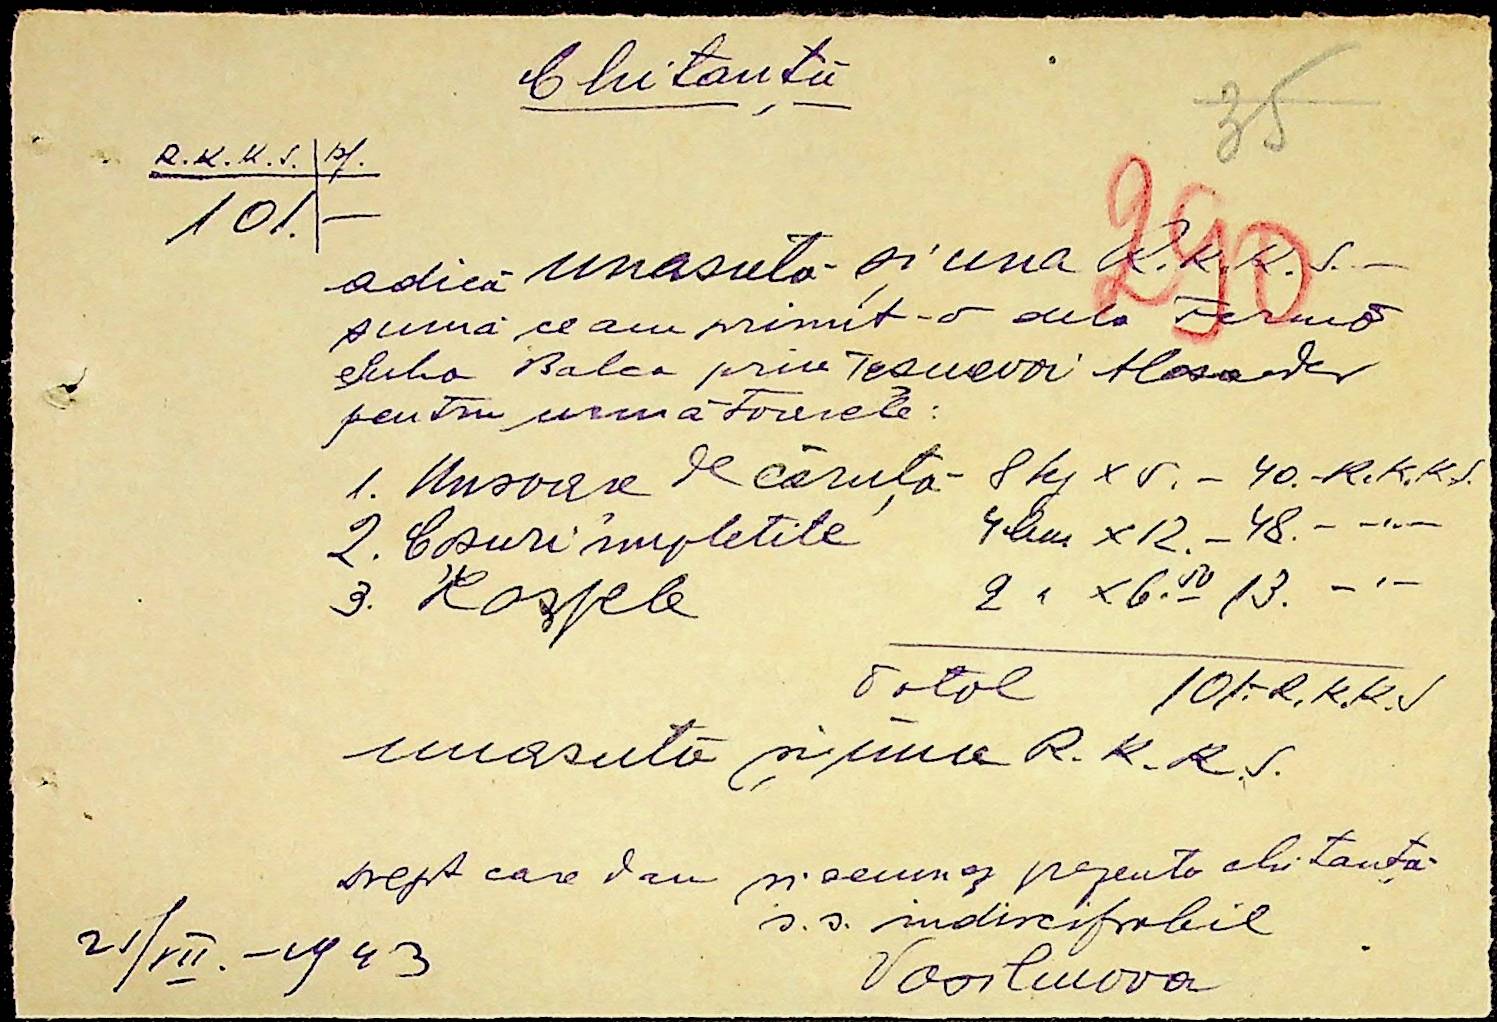 Chitanță
35
R.K.K.S. | pf.
101.|—
290
adică unasută și una R.K.K.S. —
sumă ce am primit-o dela Ferma
Suha Balca prin
pentru următoarele:
1. Unsoare de căruță 8 kg x 5. – 40.– R.K.K.S.
2. Cosuri împletite 4 buc x 12. – 48. – –"–
3. 2 " x 6.50 13. – –"–
Total 101.– R.K.K.S
unasută și una R.K.K.S.
drept care dau și semnez prezenta chitanță
s.s. indiscifrabil
21/VII. – 1943